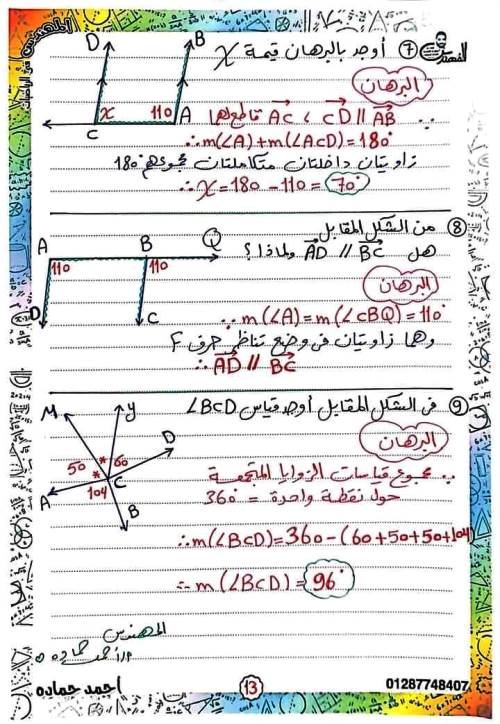 المهندس في الرياضيات
المهندس
⑦ أوجد بالبرهان قيمة X
D
B
x
110
C
A
البرهان
∵ CD // AB ، AC قاطع لهما
∴ m(∠A)+m(∠ACD)=180°
زاويتان داخلتان متكاملتان مجموعهم 180°
∴ X = 180 - 110 = 70°
⑧ من الشكل المقابل
هل AD // BC ولماذا ؟
A
B
Q
110
110
D
C
البرهان
∵ m(∠A)=m(∠CBQ)=110°
وهما زاويتان فى وضع تناظر حرف F
∴ AD // BC
⑨ فى الشكل المقابل أوجد قياس ∠BCD
M
Y
D
50
60
*
*
C
A
104
B
البرهان
∵ مجموع قياسات الزوايا المتجمعة
حول نقطة واحدة = 360°
∴ m(∠BCD)=360-(60+50+50+104)
∴ m(∠BCD)= 96°
المهندس
أ/أحمد حماده
احمد حماده
13
01287748407